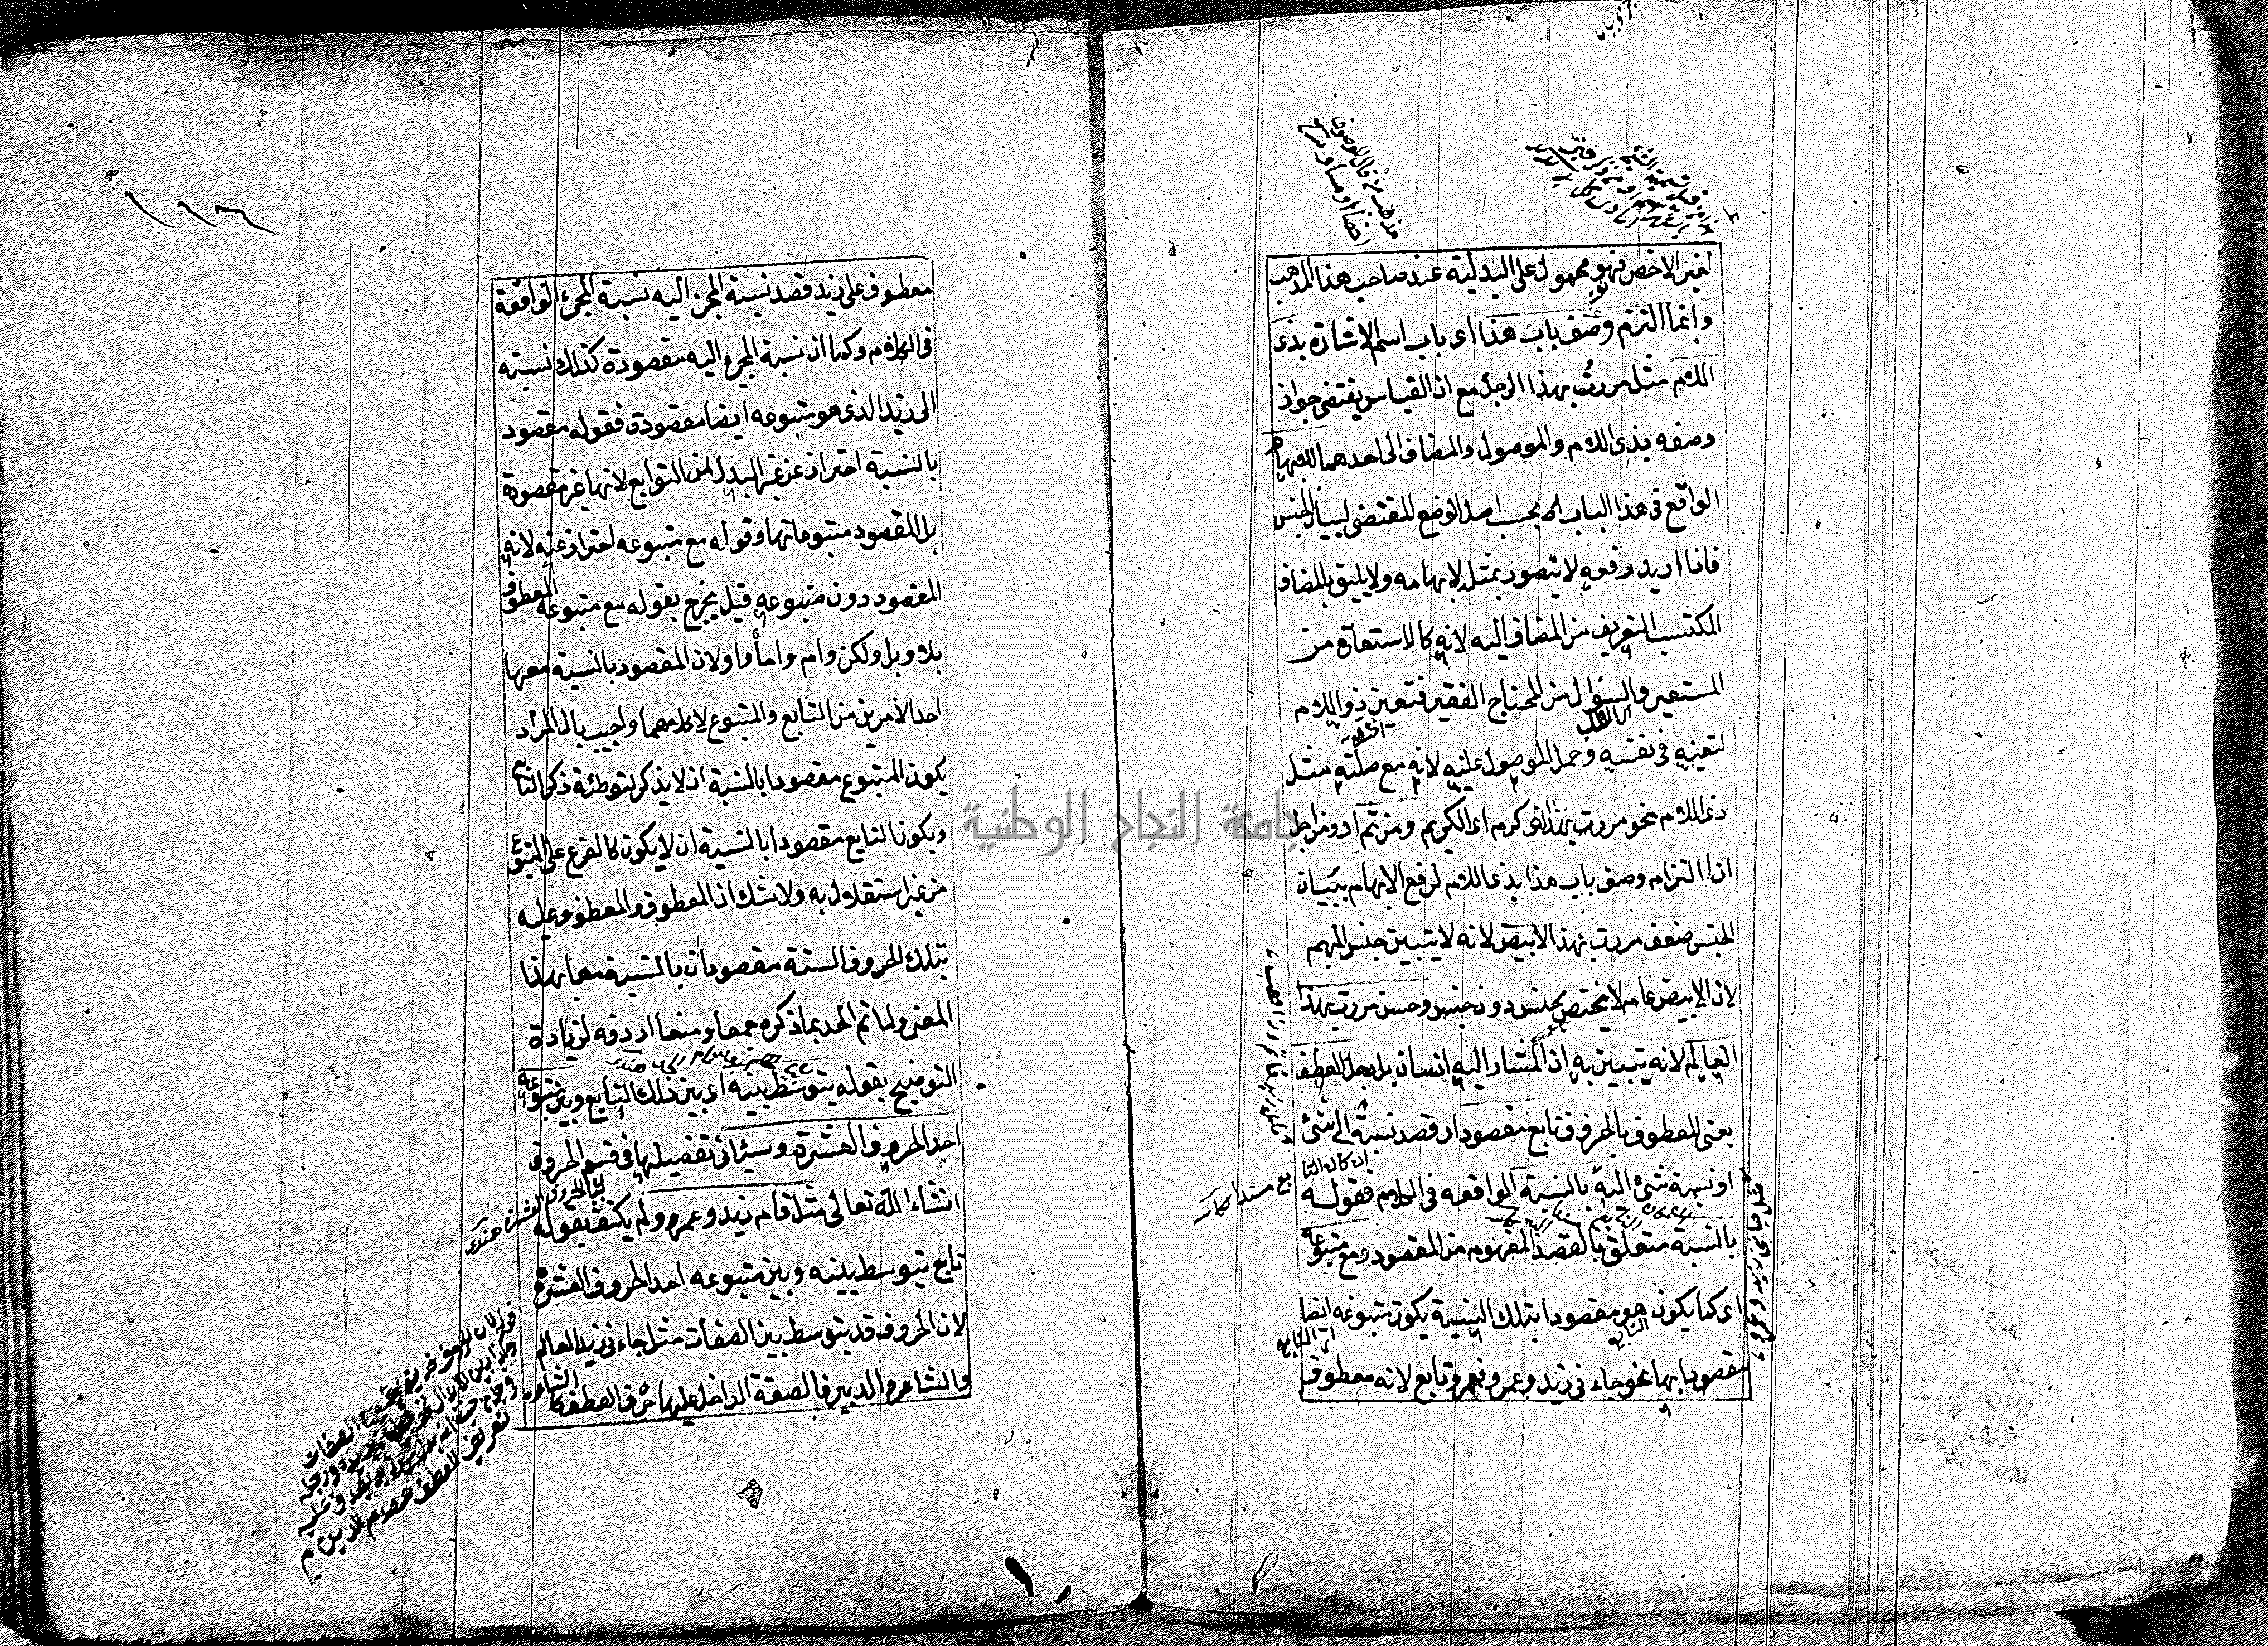 لغير الاخص فهو محمول على البدلية عند صاحب هذا المذهب
وانما التزم وصف باب هذا اى باب اسم الاشارة بذى
اللام مثل مررت بهذا الرجل مع ان القياس يقتضى جواز
وصفه بذى اللام والموصول والمضاف الى احدهما للابهام
الواقع فى هذا الباب بحسب اصل الوضع المقتضى لبيان الجنس
فاذا اريد رفعه لا يتصور بمثله لابهامه ولا يليق بالمضاف
المكتسب التعريف من المضاف اليه لانه كالاستعارة من
المستعير والسؤال من المحتاج الفقير فتعين ذو اللام
لتعينه فى نفسه وحمل الموصول عليه لانه مع صلته مثل
ذى اللام نحو مررت بهذا الذى كرم اى الكريم ومن ثم اى ومن اجل
ان التزام وصف باب هذا بذى اللام لرفع الابهام ببيان
الجنس ضعف مررت بهذا الابيض لانه لا يتبين جنس المبهم
لان الابيض عام لا يختص بجنس دون جنس وحسن مررت بهذا
العالم لانه يتبين به ان المشار اليه انسان بل رجل العطف
يعنى المعطوف بالحروف تابع مقصود اى قصد نسبته الى شئ
او نسبة شئ اليه بالنسبة الواقعة فى الكلام فقوله
بالنسبة متعلق بالقصد المفهوم من المقصود مع متبوعه
اى كما يكون هو مقصودا بتلك النسبة يكون متبوعه ايضا
مقصودا بها نحو جاءنى زيد وعمرو فعمرو تابع لانه معطوف
١١٦
معطوف على زيد قصد نسبة المجئ اليه نسبة المجئ الواقعة
فى الكلام وكما ان نسبة المجئ اليه مقصودة كذلك نسبته
الى زيد الذى هو متبوعه ايضا مقصودة فقوله مقصود
بالنسبة احتراز عن غير البدل من التوابع لانها غير مقصودة
بل المقصود متبوعاتها وقوله مع متبوعه احتراز عنه لانه
المقصود دون متبوعه قيل يخرج بقوله مع متبوعه المعطوف
بلا وبل ولكن وام واما واو لان المقصود بالنسبة معها
احد الامرين من التابع والمتبوع لا كلاهما واجيب بان المراد
يكون المتبوع مقصودا بالنسبة ان لا يذكر لتوطئة ذكر التابع
ويكون التابع مقصودا بالنسبة ان لا يكون كالفرع على المتبوع
من غير استقلال به ولا شك ان المعطوف والمعطوف عليه
بتلك الحروف الستة مقصودان بالنسبة معا بهذا
المعنى ولما تم الحد بما ذكره جمعا ومنعا اردفه لزيادة
التوضيح بقوله يتوسط بينه اى بين ذلك التابع وبين متبوعه
احد الحروف العشرة وسيأتى تفصيلها فى قسم الحروف
انشاء الله تعالى مثل قام زيد وعمرو ولم يكتف بقوله
تابع يتوسط بينه وبين متبوعه احد الحروف العشرة
لان الحروف قد يتوسط بين الصفات مثل جاءنى زيد العالم
والشاعر والدبير فالصفة الداخل عليها حرف العطف
جامعة النجاح الوطنية